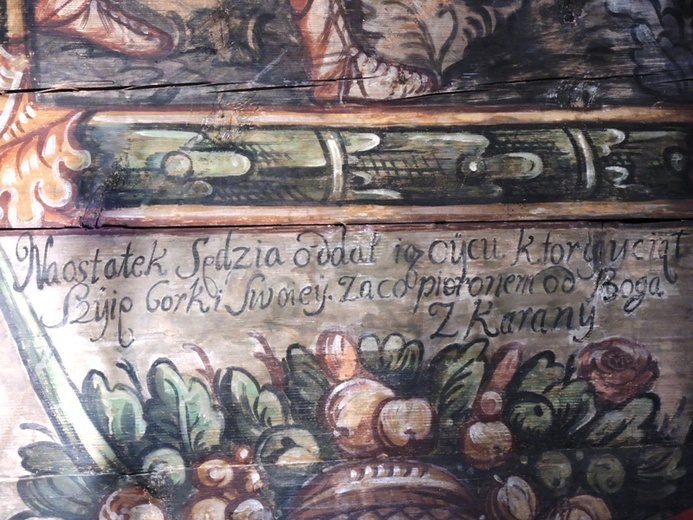 Naostatek Sędzia oddał ią oÿcu. ktorÿ uciął
Szÿię Corki Swoieÿ. Zaco pioronem od Boga
Z Karanÿ